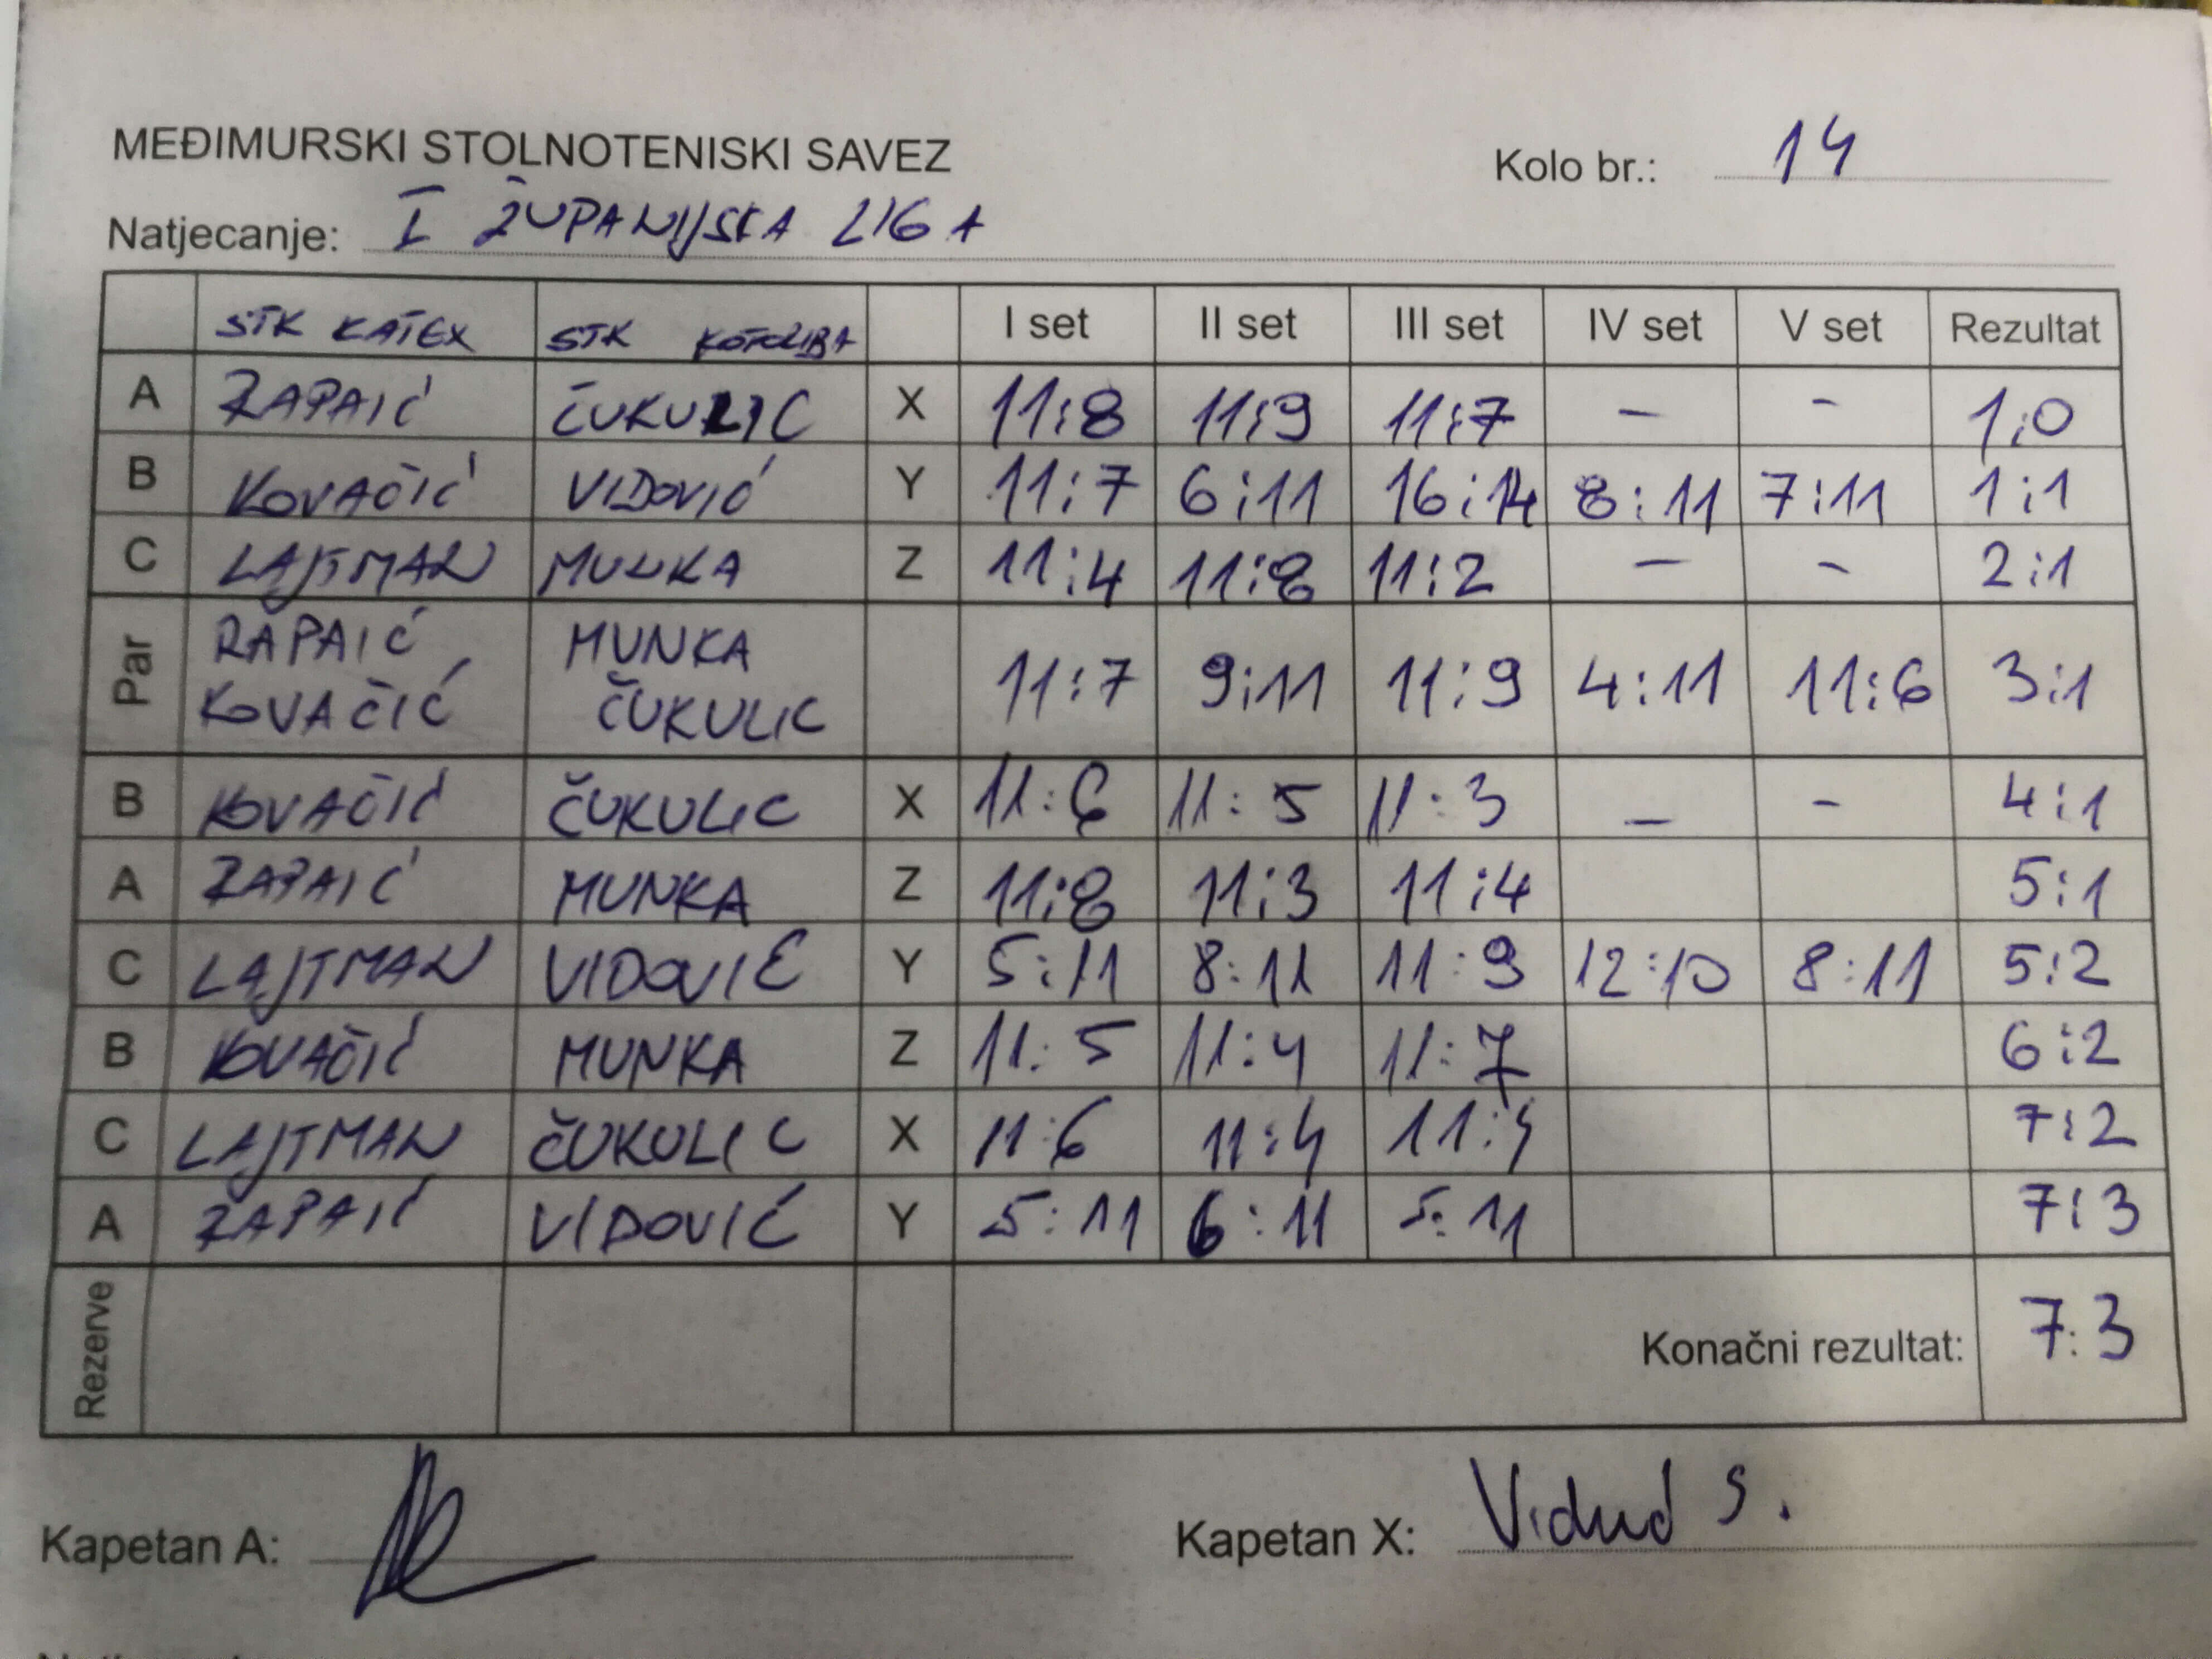 MEĐIMURSKI STOLNOTENISKI SAVEZ
Kolo br.: 14
Natjecanje: I ŽUPANIJSKA LIGA
STK KATEX STK KOTORIBA I set II set III set IV set V set Rezultat
A RAPAIĆ ČUKULIC X 11:8 11:9 11:7 – – 1:0
B KOVAČIĆ VIDOVIĆ Y 11:7 6:11 16:14 8:11 7:11 1:1
C LAJTMAN MUNKA Z 11:4 11:8 11:2 – – 2:1
Par RAPAIĆ KOVAČIĆ MUNKA ČUKULIC 11:7 9:11 11:9 4:11 11:6 3:1
B KOVAČIĆ ČUKULIC X 11:6 11:5 11:3 – – 4:1
A RAPAIĆ MUNKA Z 11:8 11:3 11:4 5:1
C LAJTMAN VIDOVIĆ Y 5:11 8:11 11:9 12:10 8:11 5:2
B KOVAČIĆ MUNKA Z 11:5 11:4 11:7 6:2
C LAJTMAN ČUKULIC X 11:6 11:4 11:4 7:2
A RAPAIĆ VIDOVIĆ Y 5:11 6:11 5:11 7:3
Rezerve Konačni rezultat: 7:3
Kapetan A: Kapetan X: